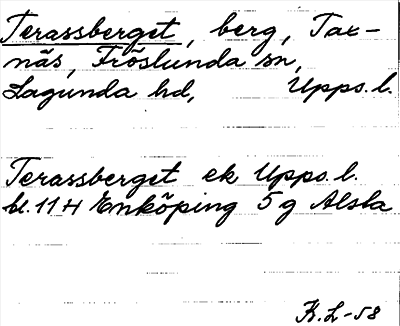 Terassberget, berg, Tax-
näs, Fröslunda sn,
Lagunda hd, Upps. l.
Terassberget ek Upps. l.
bl. 11 H Enköping 5 g Alsta
K. L-58